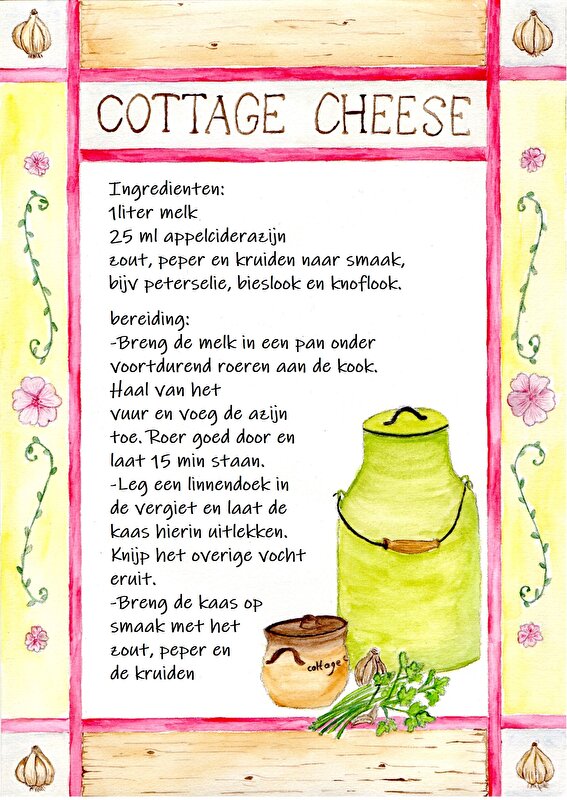 COTTAGE CHEESE
Ingredienten:
1liter melk
25 ml appelciderazijn
zout, peper en kruiden naar smaak,
bijv peterselie, bieslook en knoflook.
bereiding:
-Breng de melk in een pan onder
voortdurend roeren aan de kook.
Haal van het
vuur en voeg de azijn
toe. Roer goed door en
laat 15 min staan.
-Leg een linnendoek in
de vergiet en laat de
kaas hierin uitlekken.
Knijp het overige vocht
eruit.
-Breng de kaas op
smaak met het
zout, peper en
de kruiden
cottage c